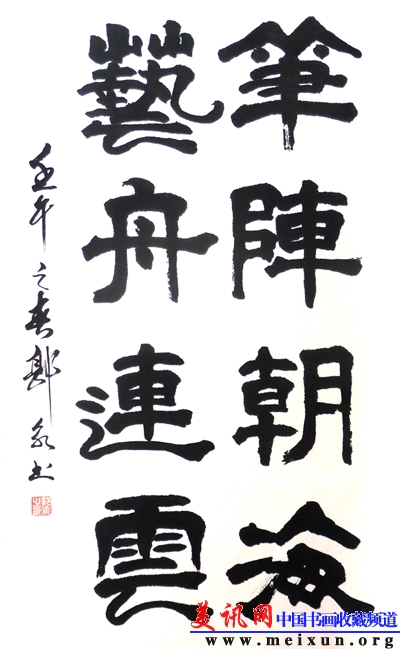 筆陣朝海
藝舟連雲
壬午之春鄭书
美讯网 中国书画收藏频道
www.meixun.org